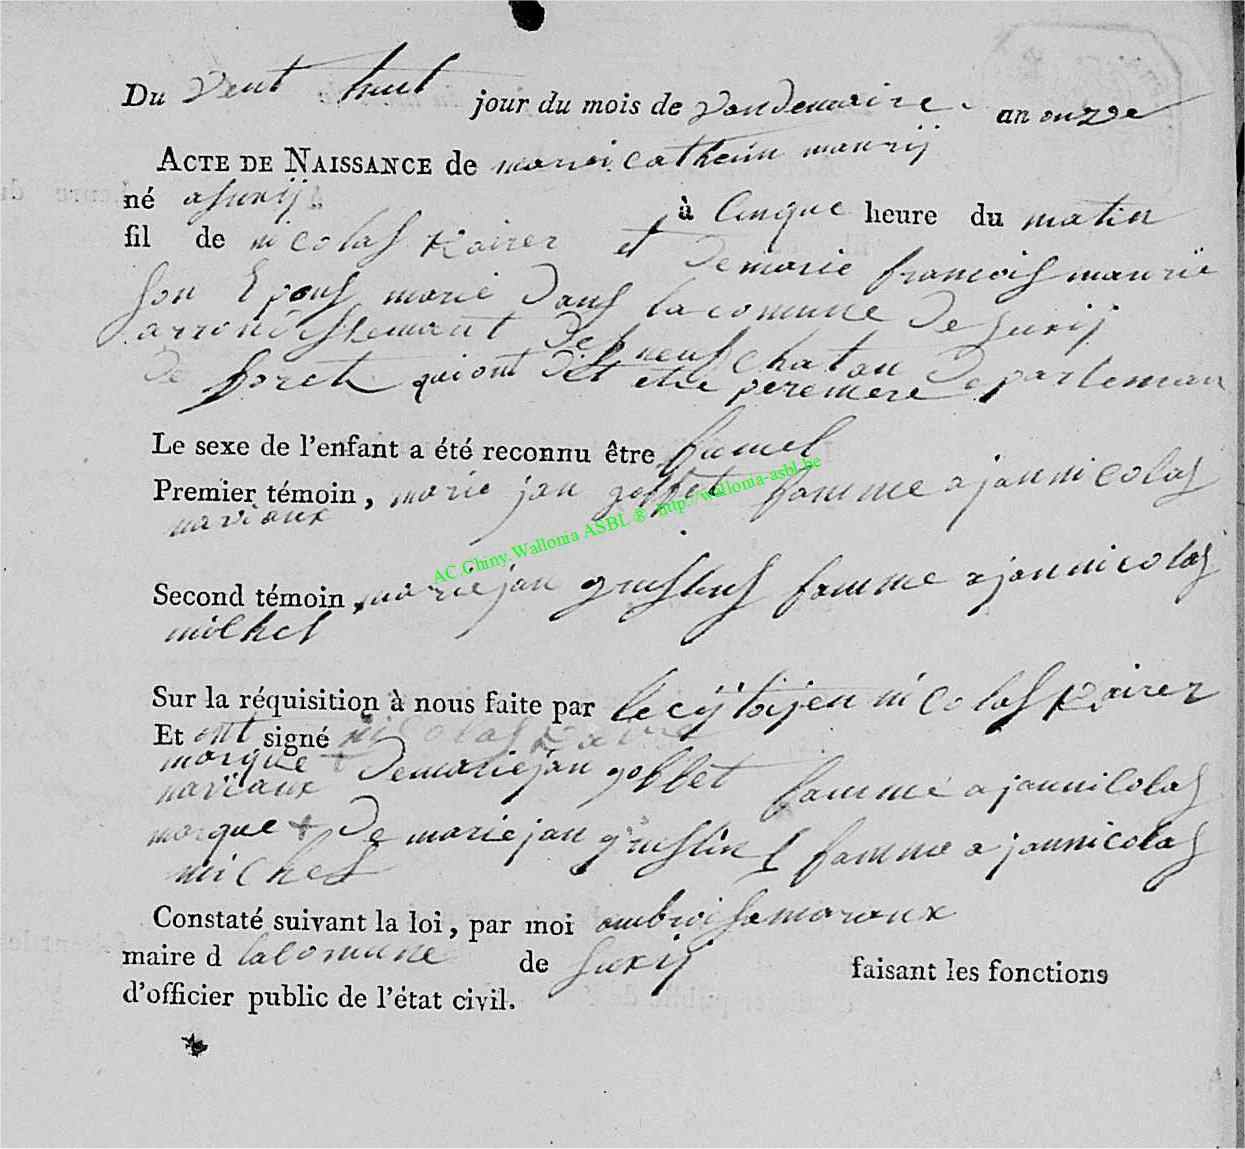 Du vent huit jour du mois de vandemaire an onze
ACTE DE NAISSANCE de marri catherin maurij
né a suxij à cinque heure du matin
fil de nicolas Roirer et
de marie francois maurië
son Epous marié dans la comune de suxij
arrondissemant de neufchatau departeman
de foret qui ont dit etre pere mere
Le sexe de l'enfant a été reconnu être fumel
Premier témoin, marie jan goffet famme a jannicolas
naviaux
AC.Chiny.Wallonia ASBL ® http://wallonia-asbl.be
Second témoin, marie jan famme a jannicolas
michel
Sur la réquisition à nous faite par le cijtoijen nicolas Roirer
Et ont signé nicolas
marque + de marie jan goffet famme a jannicolas
naviaux
marque + de marie jan famme a jannicolas
michel
Constaté suivant la loi, par moi ambroisse maraux
maire d lacomune de suxij faisant les fonctions
d'officier public de l'état civil.